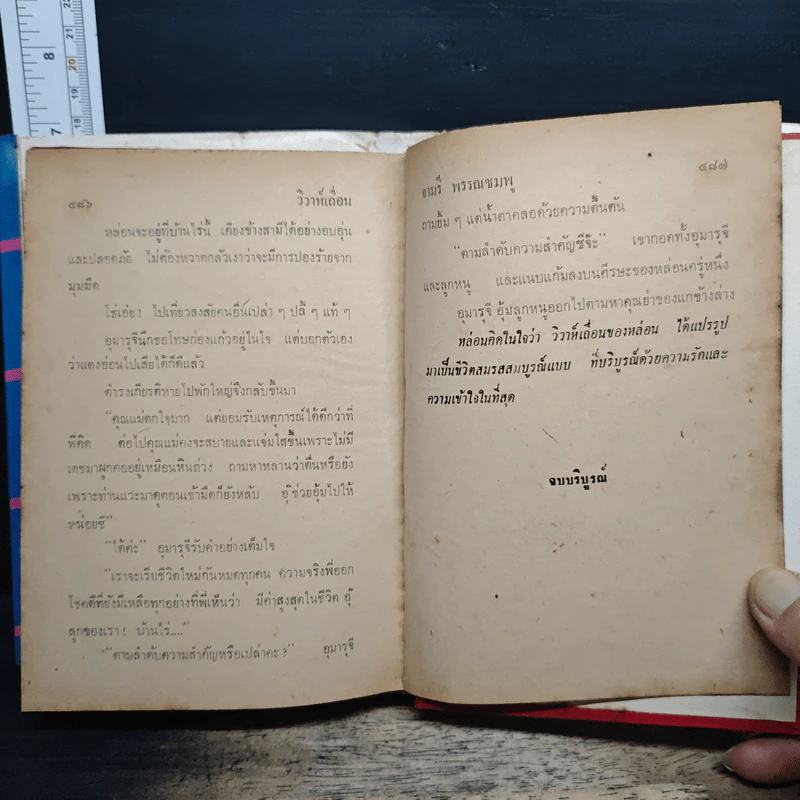 ๔๘๖ วิวาห์เถื่อน
หล่อนจะอยู่ที่บ้านไร่นี้ เคียงข้างสามีได้อย่างอบอุ่น
และปลอดภัย ไม่ต้องหวาดกลัวเงาว่าจะมีการปองร้ายจาก
มุมมืด
โธ่เอ๋ย! ไปเที่ยวสงสัยคนอื่นเปล่า ๆ ปลี้ ๆ แท้ ๆ
อุมารุจีนึกขอโทษก่องแก้วอยู่ในใจ แต่บอกตัวเอง
ว่าแดงอ่อนไปเสียได้ก็ดีแล้ว
ดำรงเกียรติหายไปพักใหญ่จึงกลับขึ้นมา
“คุณแม่ตกใจมาก แต่ยอมรับเหตุการณ์ได้ดีกว่าที่
พี่คิด ต่อไปคุณแม่คงจะสบายและแจ่มใสขึ้นเพราะไม่มี
เดชมาผูกคออยู่เหมือนหินถ่วง ถามหาหลานว่าตื่นหรือยัง
เพราะท่านแวะมาดูตอนเช้ามืดก็ยังหลับ อุ๊ช่วยอุ้มไปให้
หน่อยซี”
“ได้ค่ะ” อุมารุจีรับคำอย่างเต็มใจ
“เราจะเริ่มชีวิตใหม่กันหมดทุกคน ความจริงพี่ออก
โชคดีที่ยังมีเหลือทุกอย่างที่พี่เห็นว่า มีค่าสูงสุดในชีวิต อุ๊
ลูกของเรา! บ้านไร่....”
“ตามลำดับความสำคัญหรือเปล่าคะ?” อุมารุจี
จามรี พรรณชมพู ๔๘๗
ถามยิ้ม ๆ แต่น้ำตาคลอด้วยความตื้นตัน
“ตามลำดับความสำคัญซีจ๊ะ” เขากอดทั้งอุมารุจี
และลูกหนู และแนบแก้มลงบนศีรษะของหล่อนครู่หนึ่ง
อุมารุจี อุ้มลูกหนูออกไปตามหาคุณย่าของแกข้างล่าง
หล่อนคิดในใจว่า วิวาห์เถื่อนของหล่อน ได้แปรรูป
มาเป็นชีวิตสมรสสมบูรณ์แบบ ที่บริบูรณ์ด้วยความรักและ
ความเข้าใจในที่สุด
จบบริบูรณ์
22
8
21
20
19
7
18